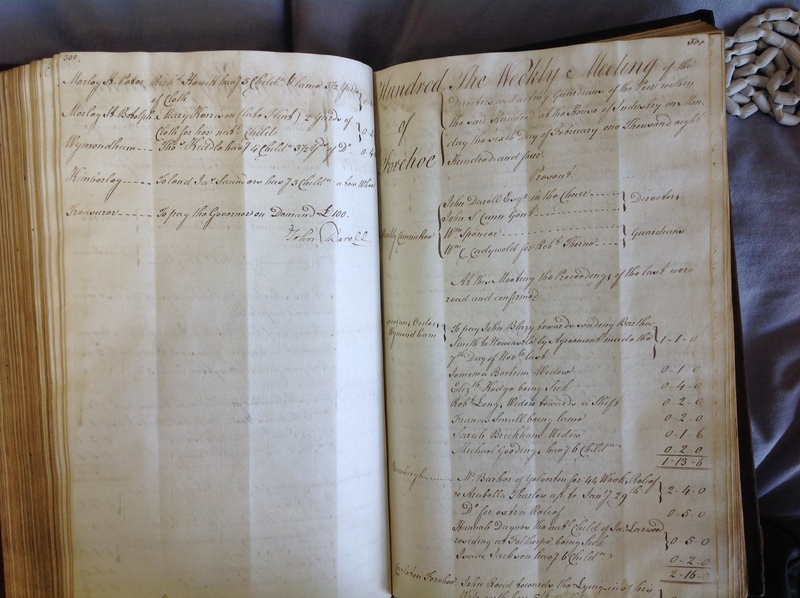 300.
Morley St. Peter Benj.n Howit hav.g 5 Child.n & lame 3½ Yards
of Cloth
Morley St. Botolph Mary Harrison 2 Yards of
Cloth for her nat.l Child
Wymondham Tho.s Kiddle hav.g 4 Child.n 3½ Yds of Do.
Kimberley To lend Jas. hav.g 3 Child.n a tow Wheel
Treasurer To pay the Governor on Demand £100.
John Darell
301
Hundred of Forehoe
The Weekly Meeting of the
Directors and acting Guardians of the Poor within
the said Hundred at the House of Industry on Mon-
day the Sixth Day of February one Thousand eight
Hundred and four
Present
Weekly Committee
John Darell Esqr. in the Chair
John S Cann Gent.
Directors
Wm. Spencer
Wm. C. Cadywold for Robt. Thorne
Guardians
At this Meeting the Proceedings of the last were
read and confirmed
Orders
Wymondham
To pay John Blazy towards sending Barthw.
Smith to Newcastle by Agreement made the
7th Day of Novr. last
1-1-0
Jemima Bartram Widow 0-1-0
Elizth. Hodge being Sick 0-4-0
Robt. Long Widow towards a Shift 0-2-0
Francis Small being lame 0-2-0
Sarah Brickham Widow 0-1-6
Michael Gooding hav.g 6 Child.n 0-2-0
1-13-6
Mr. Barker of Yelverton for 44 Weeks Relief
to Arabella Thurlow up to Jany. 29th
2-4-0
Do. for extra Relief 0-5-0
Hannah Dagnes the nat.l Child of Jas. Larwood
residing at Felthorpe being Sick
0-5-0
Isaac Jackson hav.g 6 Child.n 0-2-0
2-16-0
Carleton Forehoe John Reed towards the Lying in of his
Wife with her